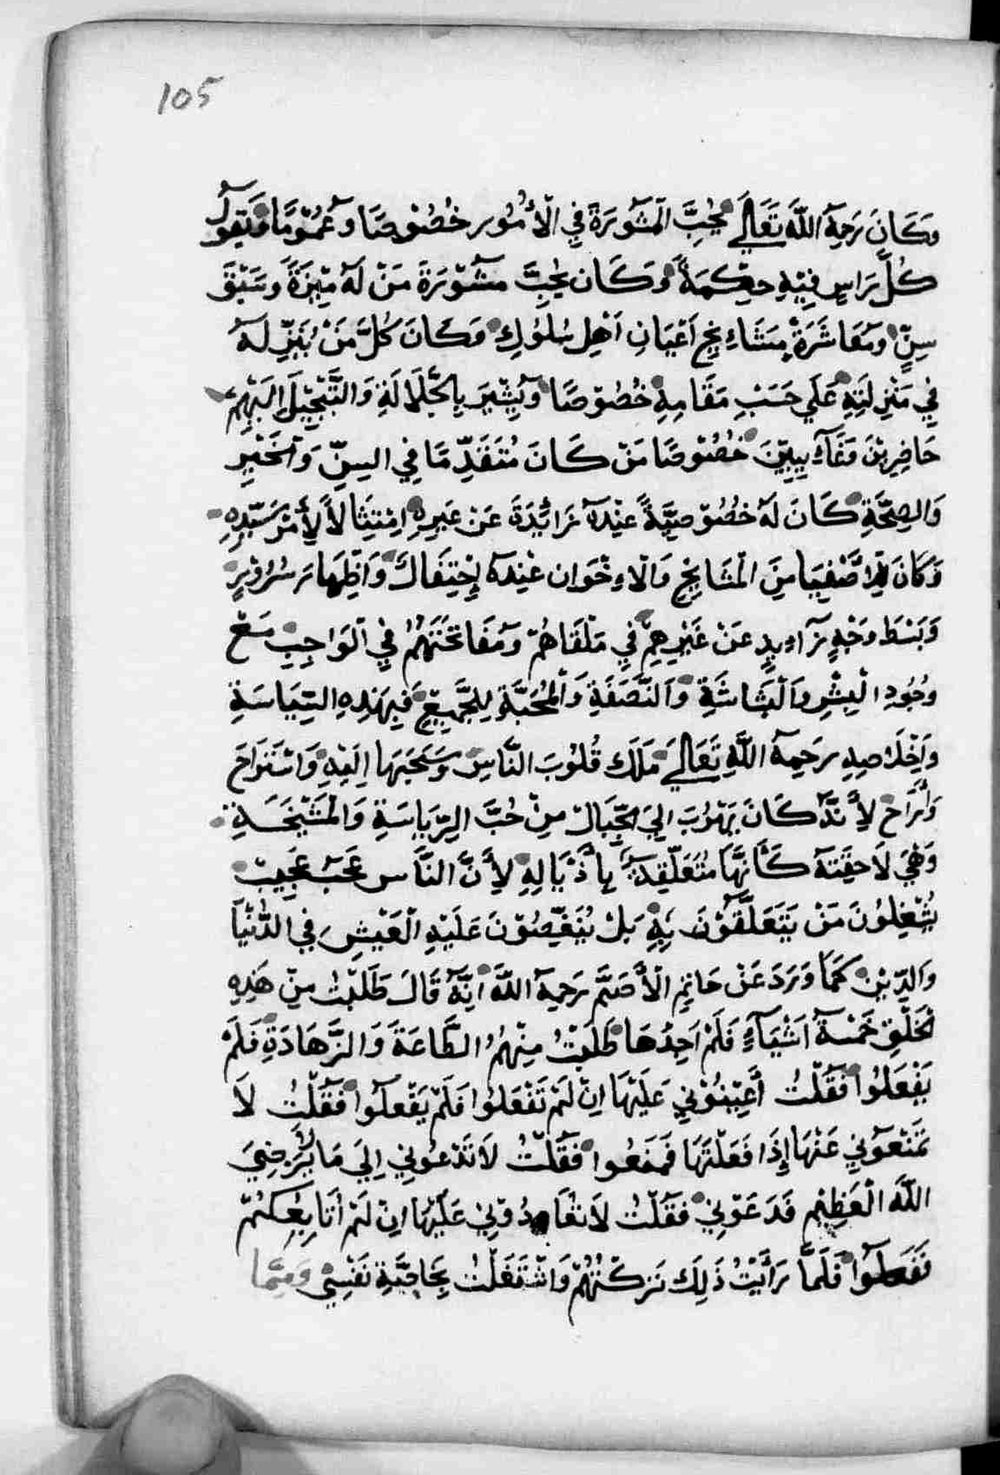 105
وَكَانَ رَحِمَهُ اللَّهُ تَعَالَى يُحِبُّ الْمَشْوَرَةَ فِي الْأُمُورِ خُصُوْصًا وَعُمُوْمًا وَيَقُولُ
كُلُّ رَاسٍ فِيْهِ حِكْمَةٌ وَكَانَ يُحِبُّ مَشْوَرَةَ مَنْ لَهُ مِيْزَةٌ وَسَبْقَ
سِنٍّ وَمُعَاشَرَةْ مَشَايِخِ اَعْيَانِ اَهْلِ سُلُوكِ وَكَانَ كُلَّ مَنْ يُنَزِّلهُ
فِي مَنْزِلَتِهِ عَلَي حَسَبِ مَقَامِهِ خُصُوْصًا وَيُشِيْرَ بِالْجَلَالَةِ وَالتَّبْجِيْلَ اِلَيْهِمْ
حَاضِرِيْنَ وَغَآئِبِيْنَ خُصُوْصًا مَنْ كَانَ مُتَقَدِّمًا فِي السِنِّ وَالْخَيْرِ
وَالصِحَّةِ كَانَ لَهُ خُصُوْصِيَّةٌ عِنْدَهُ زَائِدَةَ عَنْ غَيرِهِ اِمْتِثَالاً لِأَمْرِ سَيِّدِهِ
وَكَانَ المَشَايِخِ وَالْاِخْوَان عِنْدَهُ اِحْتِفَالٌ وَاَظْهَارَ سُرُوْرٍ
وَبَسْطَ وَجْهٍ زَآئِدٍ عَنْ غَيْرِهِمْ فِي مَلْقَاهُمْ وَمُفَاتَحَتِهِمْ فِي الْوَاجِبِ مَعَ
وُجُودِ الْبِشْرِ وَالْبَشَاشَةِ وَالنَّصَفَةِ وَالْمُحَبَّةِ لِلْجَمِيْعِ فَبِهَذِهِ السِّيَاسَةِ
وَاِخْلَاصِهِ رَحِمَهُ اللَّهِ تَعَالَى مَلَكَ قُلُوْبَ النَّاسِ وَسَحَبَهَا اِلَيْهِ وَاسْتَرَاحَ
وَأَرَاحَ لِأَنَّهُ كَانَ يَهْرُبَ اِلَى الْجِبَالْ مِنْ حُبَّ الرِيَاسَةِ وَالْمَشْيَخَةِ
وَهِيَ لَاحِقَتَهُ كَأَنَّهَا مُتَعَلِّقِةٌ بِأَذْيَالِهِ لِأَنَّ النَّاس عَجَبٌ عَجِيْبٌ
يُشْغِلُوْنَ مَنْ يَتَعَلَّقُوْنَ بِهِ بَلْ يُنَغِّصُوْنَ عَلَيْهِ الْعَيْشِ فِي الدُّنْيَا
وَالدِّيْنِ كَمَا وَرَدَ عَنْ حَاتِمِ الْأَصَمَّ رَحِمَهُ اللَّهُ اَنَّهُ قَالَ طَلَبْتُ مِنْ هَذِهِ
الخَلْقِ خَمْسَةَ اَشْيَآءٍ فَلَمْ اَجِدُهَا طَلَبْتُ مِنْهُمُ الطَّاعَةَ وَالزَّهَادَةِ فَلَمْ
يَفْعَلُوا فَقُلْتُ أَعِيْنُوْنِي عَلَيْهَا اِنْ لَمْ تَفْعَلُوا فَلَمْ يَفْعَلُوا فَقُلْتُ لَا
تَمْنَعُوْنِي عَنْهَا إِذَا فَعَلْتَهَا فَمَنَعُوا فَقُلْتُ لَا تَدْعُوْنِي اِلَى مَا لاَ يُرْضِيَ
اللَّهَ الْعَظِيْمِ فَدَعَوْنِي فَقُلْتُ لَا تُعَادُوْنِي عَلَيْهَا اِنْ لَمْ اُتَابِعُكُمْ
فَفَعَلُوا فَلَمَّا رَأَيْتُ ذَلِكَ تَرَكْتُهُمْ وَاشْتَغَلْتُ بِخَاصَّةِ نَفْسِيْ وَمِمَّا